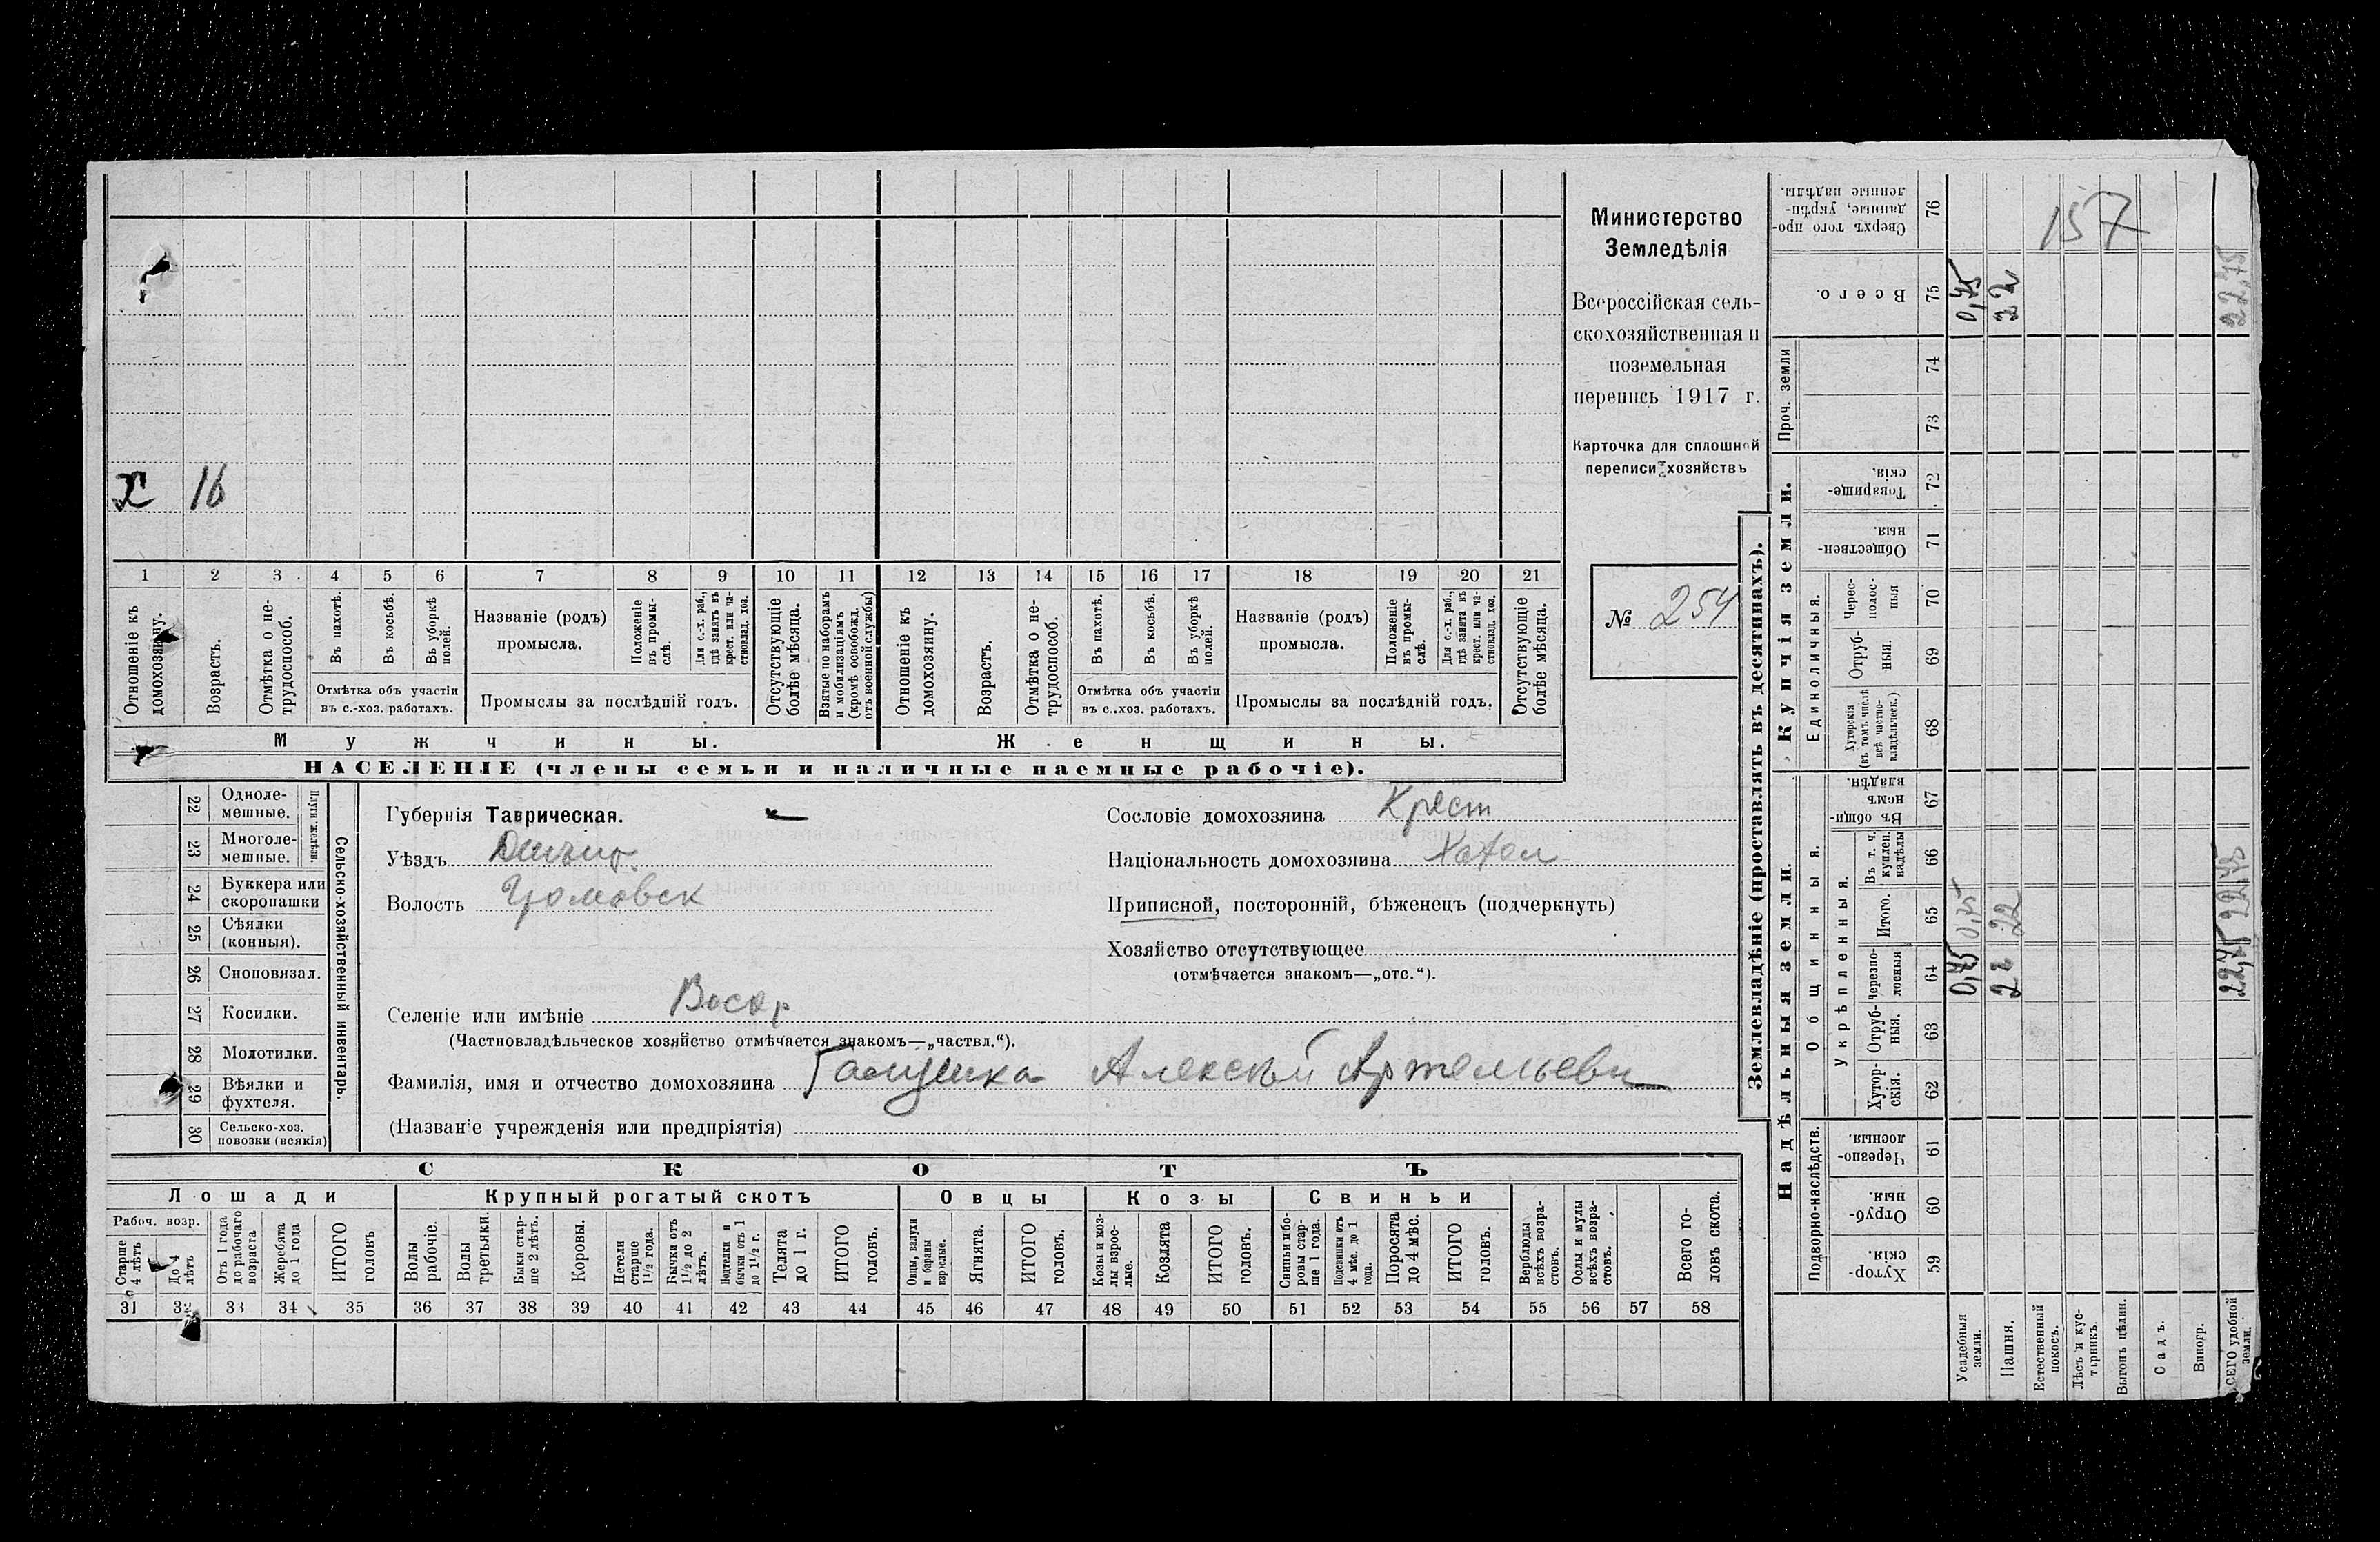 157
Министерство
Земледѣлія
Всероссійская сель-
скохозяйственная и
поземельная
перепись 1917 г.
Карточка для сплошной
переписи хозяйствъ
№ 254
х 16
1 2 3 4 5 6 7 8 9 10 11 12 13 14 15 16 17 18 19 20 21
Отношеніе къ домохозяину.
Возрастъ.
Отмѣтка о не-трудоспособ.
Въ пахотѣ.
Въ косьбѣ.
Въ уборкѣ полей.
Отмѣтка объ участіи
въ с.-хоз. работахъ.
Названіе (родъ)
промысла.
Положеніе въ промы-слѣ.
Для с.-х. раб., гдѣ занятъ въ крест. или ча-стновлад. хоз.
Промыслы за послѣдній годъ.
Отсутствующіе болѣе мѣсяца.
Взятые по наборамъ и мобилизаціямъ (кромѣ освобожд. отъ военной службы)
Отношеніе къ домохозяину.
Возрастъ.
Отмѣтка о не-трудоспособ.
Въ пахотѣ.
Въ косьбѣ.
Въ уборкѣ полей.
Отмѣтка объ участіи
въ с.-хоз. работахъ.
Названіе (родъ)
промысла.
Положеніе въ промы-слѣ.
Для с.-х. раб., гдѣ занята въ крест. или ча-стновлад. хоз.
Промыслы за послѣдній годъ.
Отсутствующіе болѣе мѣсяца.
Мужчины.
Женщины.
НАСЕЛЕНІЕ (члены семьи и наличные наемные рабочіе).
Сельско-хозяйственный инвентарь.
Плуги желѣзн.
22 Одноле-мешные.
23 Многоле-мешные.
24 Буккера или скоропашки
25 Сѣялки (конныя).
26 Сноповязал.
27 Косилки.
28 Молотилки.
29 Вѣялки и фухтеля.
30 Сельско-хоз. повозки (всякія)
Губернія Таврическая.
Уѣздъ
Волость Громовск
Селеніе или имѣніе
(Частновладѣльческое хозяйство отмѣчается знакомъ—„частвл.“).
Фамилія, имя и отчество домохозяина Галушка Алексѣй Артемьеви
(Названіе учрежденія или предпріятія)
Сословіе домохозяина Крест
Національность домохозяина Хохол
Приписной, посторонній, бѣженецъ (подчеркнуть)
Хозяйство отсутствующее
(отмѣчается знакомъ—„отс.“).
СКОТЪ
Лошади
Крупный рогатый скотъ
Овцы
Козы
Свиньи
Рабоч. возр.
Старше 4 лѣтъ
До 4 лѣтъ
Отъ 1 года до рабочаго возраста
Жеребята до 1 года
ИТОГО головъ
Волы рабочіе.
Волы третьяки.
Быки стар-ше 2 лѣтъ.
Коровы.
Нетели старше 1½ года.
Бычки отъ 1½ до 2 лѣтъ.
Подтелки и бычки отъ 1 до 1½ г.
Телята до 1 г.
ИТОГО головъ.
Овцы, валухи и бараны взрослые.
Ягнята.
ИТОГО головъ.
Козы и коз-лы взрос-лые.
Козлята
ИТОГО головъ.
Свиньи и бо-ровы стар-ше 1 года.
Подсвинки отъ 4 мѣс. до 1 года.
Поросята до 4 мѣс.
ИТОГО головъ.
Верблюды всѣхъ возра-стовъ.
Ослы и мулы всѣхъ возра-стовъ.
Всего го-ловъ скота.
31 32 33 34 35 36 37 38 39 40 41 42 43 44 45 46 47 48 49 50 51 52 53 54 55 56 57 58
Землевладѣніе (проставлять въ десятинахъ).
Надѣльныя земли.
Купчія земли.
Проч. земли
Подворно-наслѣдств.
Общинныя.
Укрѣпленныя.
Единоличныя.
Хутор-скія. 59
Отруб-ныя. 60
Черезпо-лосныя. 61
Хутор-скія. 62
Отруб-ныя. 63
Черезпо-лосныя 64
Итого. 65
Въ т. ч. куплен. надѣлы 66
Въ общи-номъ владѣн. 67
Хуторскія (въ томъ числѣ всѣ частно-владѣльческ.) 68
Отруб-ныя. 69
Черес-полос-ныя 70
Обществен-ныя. 71
Товарище-скія. 72
73
74
Всего. 75
Сверхъ того про-данные, укрѣп-ленные надѣлы. 76
Усадебныя земли. 0,75 0,75 0,75
Пашня. 22 22 22
Естественный покосъ.
Лѣсъ и кус-тарникъ.
Выгонъ цѣлин.
Садъ.
Виногр.
ВСЕГО удобной земли. 22,75 22,75 22,75